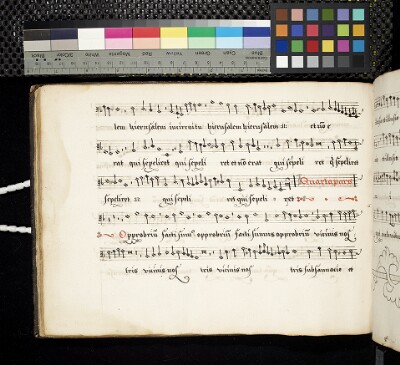 Black 3/Color White Magenta Red Yellow Green Cyan Blue
lem hierusalem in circuitu hierusalem hierusalem ii et nō e
rat qui sepeliret qui sepeli ret et nō erat qui sepeli ret q̄ sepeliret
sepeliret ii qui sepeli ret qui sepeli ret
Quarta pars
Opprobriū facti sum9 opprobriū facti sumus opprobriū vicinis nos
tris vicinis nos tris vicinis nos tris subsannatio et